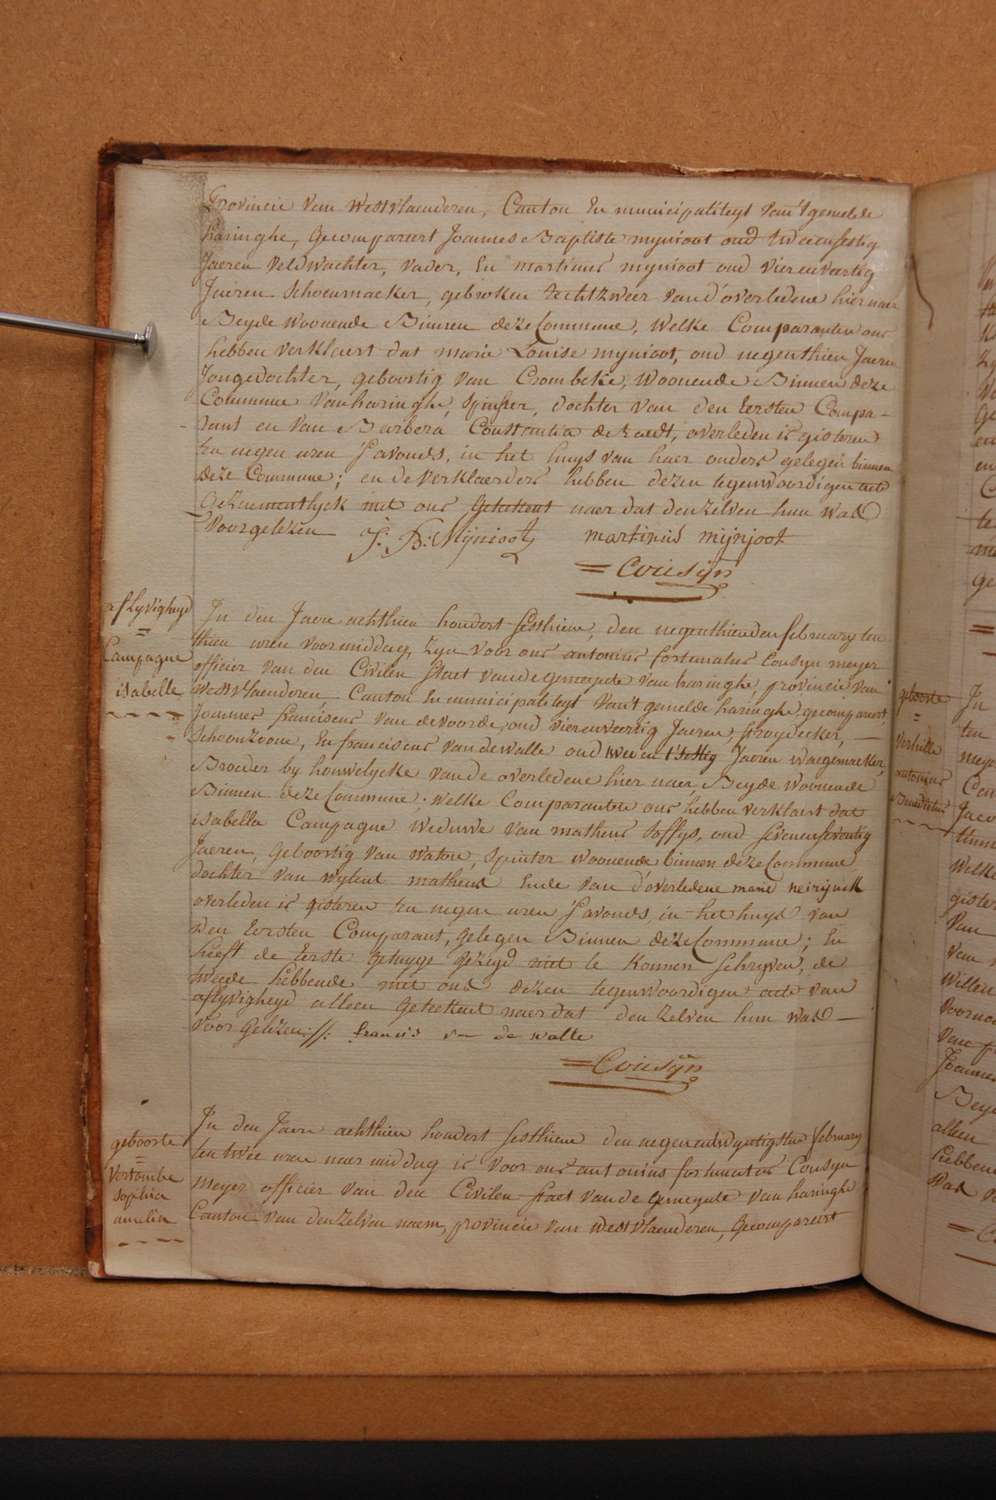 Provincie van Westvlaenderen, Canton en municipaliteyt van 't gemelde
haringhe, Gecompareert Joannes Baptiste mynioot oud tweenfestig
Jaeren veldwachter, vader, en martinus mynioot oud vierenveertig
Jaeren Schoenmaeker, gebroken rechtzweer van d'overledene hier naer
Beyde woonende Binnen deze Commune, welke Comparanten ons
hebben verklaert dat marie Louise mynioot, oud negenthien Jaeren
Jongedochter, geboortig van Crombeke, woonende Binnen deze
Commune van haringhe, spinster, dochter van den Eersten Compa-
rant en van Barbera Constantia de raedt, overleden is gisteren
ten negen uren 's avonds, in het huys van haer ouders gelegen binnen
deze Commune; en de verklaerders hebben dezen tegenwoordigen acte
Gezaementlyck met ons Geteekent naer dat denzelven hun was
Voorgelezen J: B: Mijnioot martinus mijnjoot
= Cousijn
aflyvigheyd
=
Campagne
isabelle
In den Jaere achthien hondert sesthiene, den negenthienden february ten
thien uren voormiddag, zyn voor ons antonius fortunatus Cousyn meyer
officier van den Civilen Staet van de gemeynte van haringhe provincie van
westvlaenderen Canton en municipaliteyt van't gemelde haringhe gecompareert
Joannes franciscus van de voorde, oud vierenveertig Jaeren, stroydecker,
schoonzoone, en franciscus vandewalle oud tweeen t'sestig Jaeren waegemaeker,
Broeder by houwelycke van de overledene hier naer, Beyde woonende
Binnen deze Commune, welke Comparanten ons hebben verklaert dat
isabella Campagne weduwe van matheus soffys, oud sevenenseventig
Jaeren, geboortig van watou, spinster woonende binnen deze Commune
dochter van wylent matheus Ende van d'overledene marie neirijnck
overleden is gisteren ten negen uren 's avonds, in het huys van
den Eersten Comparant, gelegen Binnen deze Commune; En
heeft de Eerste getuyge gezeyd niet te konnen schryven, de
tweede hebbende met ons dezen tegenwoordigen acte van
aflyvigheyd alleen geteekent naer dat den zelven hun was
voor gelezen francis v de walle
= Cousijn
geboorte
=
Vertombe
sophia
amelia
In den Jaere achthien hondert sesthiene den negenentwyntigsten february
ten twee uren naer middag is voor ons antonius fortunatus Cousyn
meyer officier van den Civilen staet van de gemeynte van haringhe
Canton van denzelven naem, provincie van westvlaenderen, Gecompareert
geboorte
=